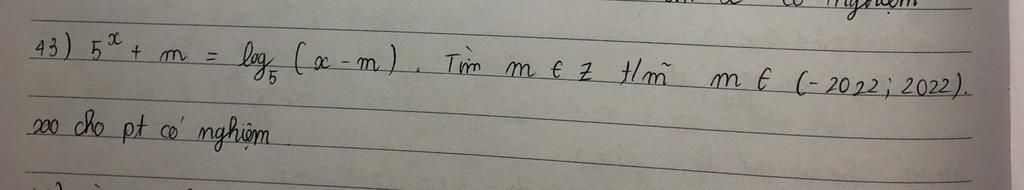 có nghiệm
43) 5^x + m = log_5 (x - m). Tìm m ∈ Z t/m̃ m ∈ (-2022; 2022).
sao cho pt có nghiệm